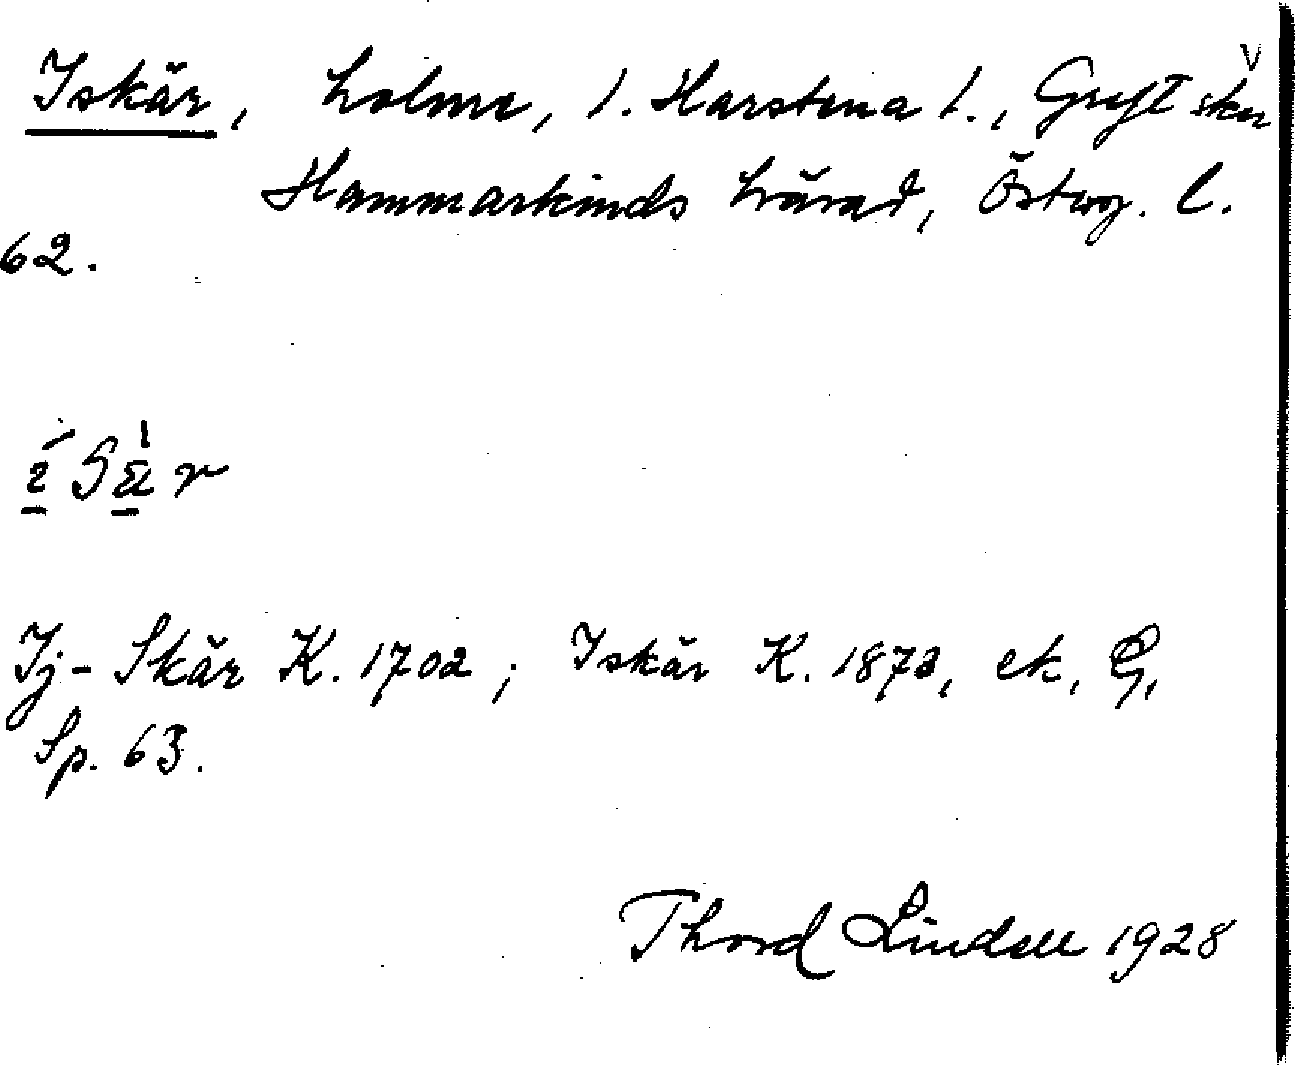 Iskär, holme, 1. Harstena 1., Gryt skn
Hammarkinds härad, Österg. l.
62.
Ij-Skär K. 1702; Iskär K. 1873, ek. G,
Sp. 63.
Thord Lindell 1928